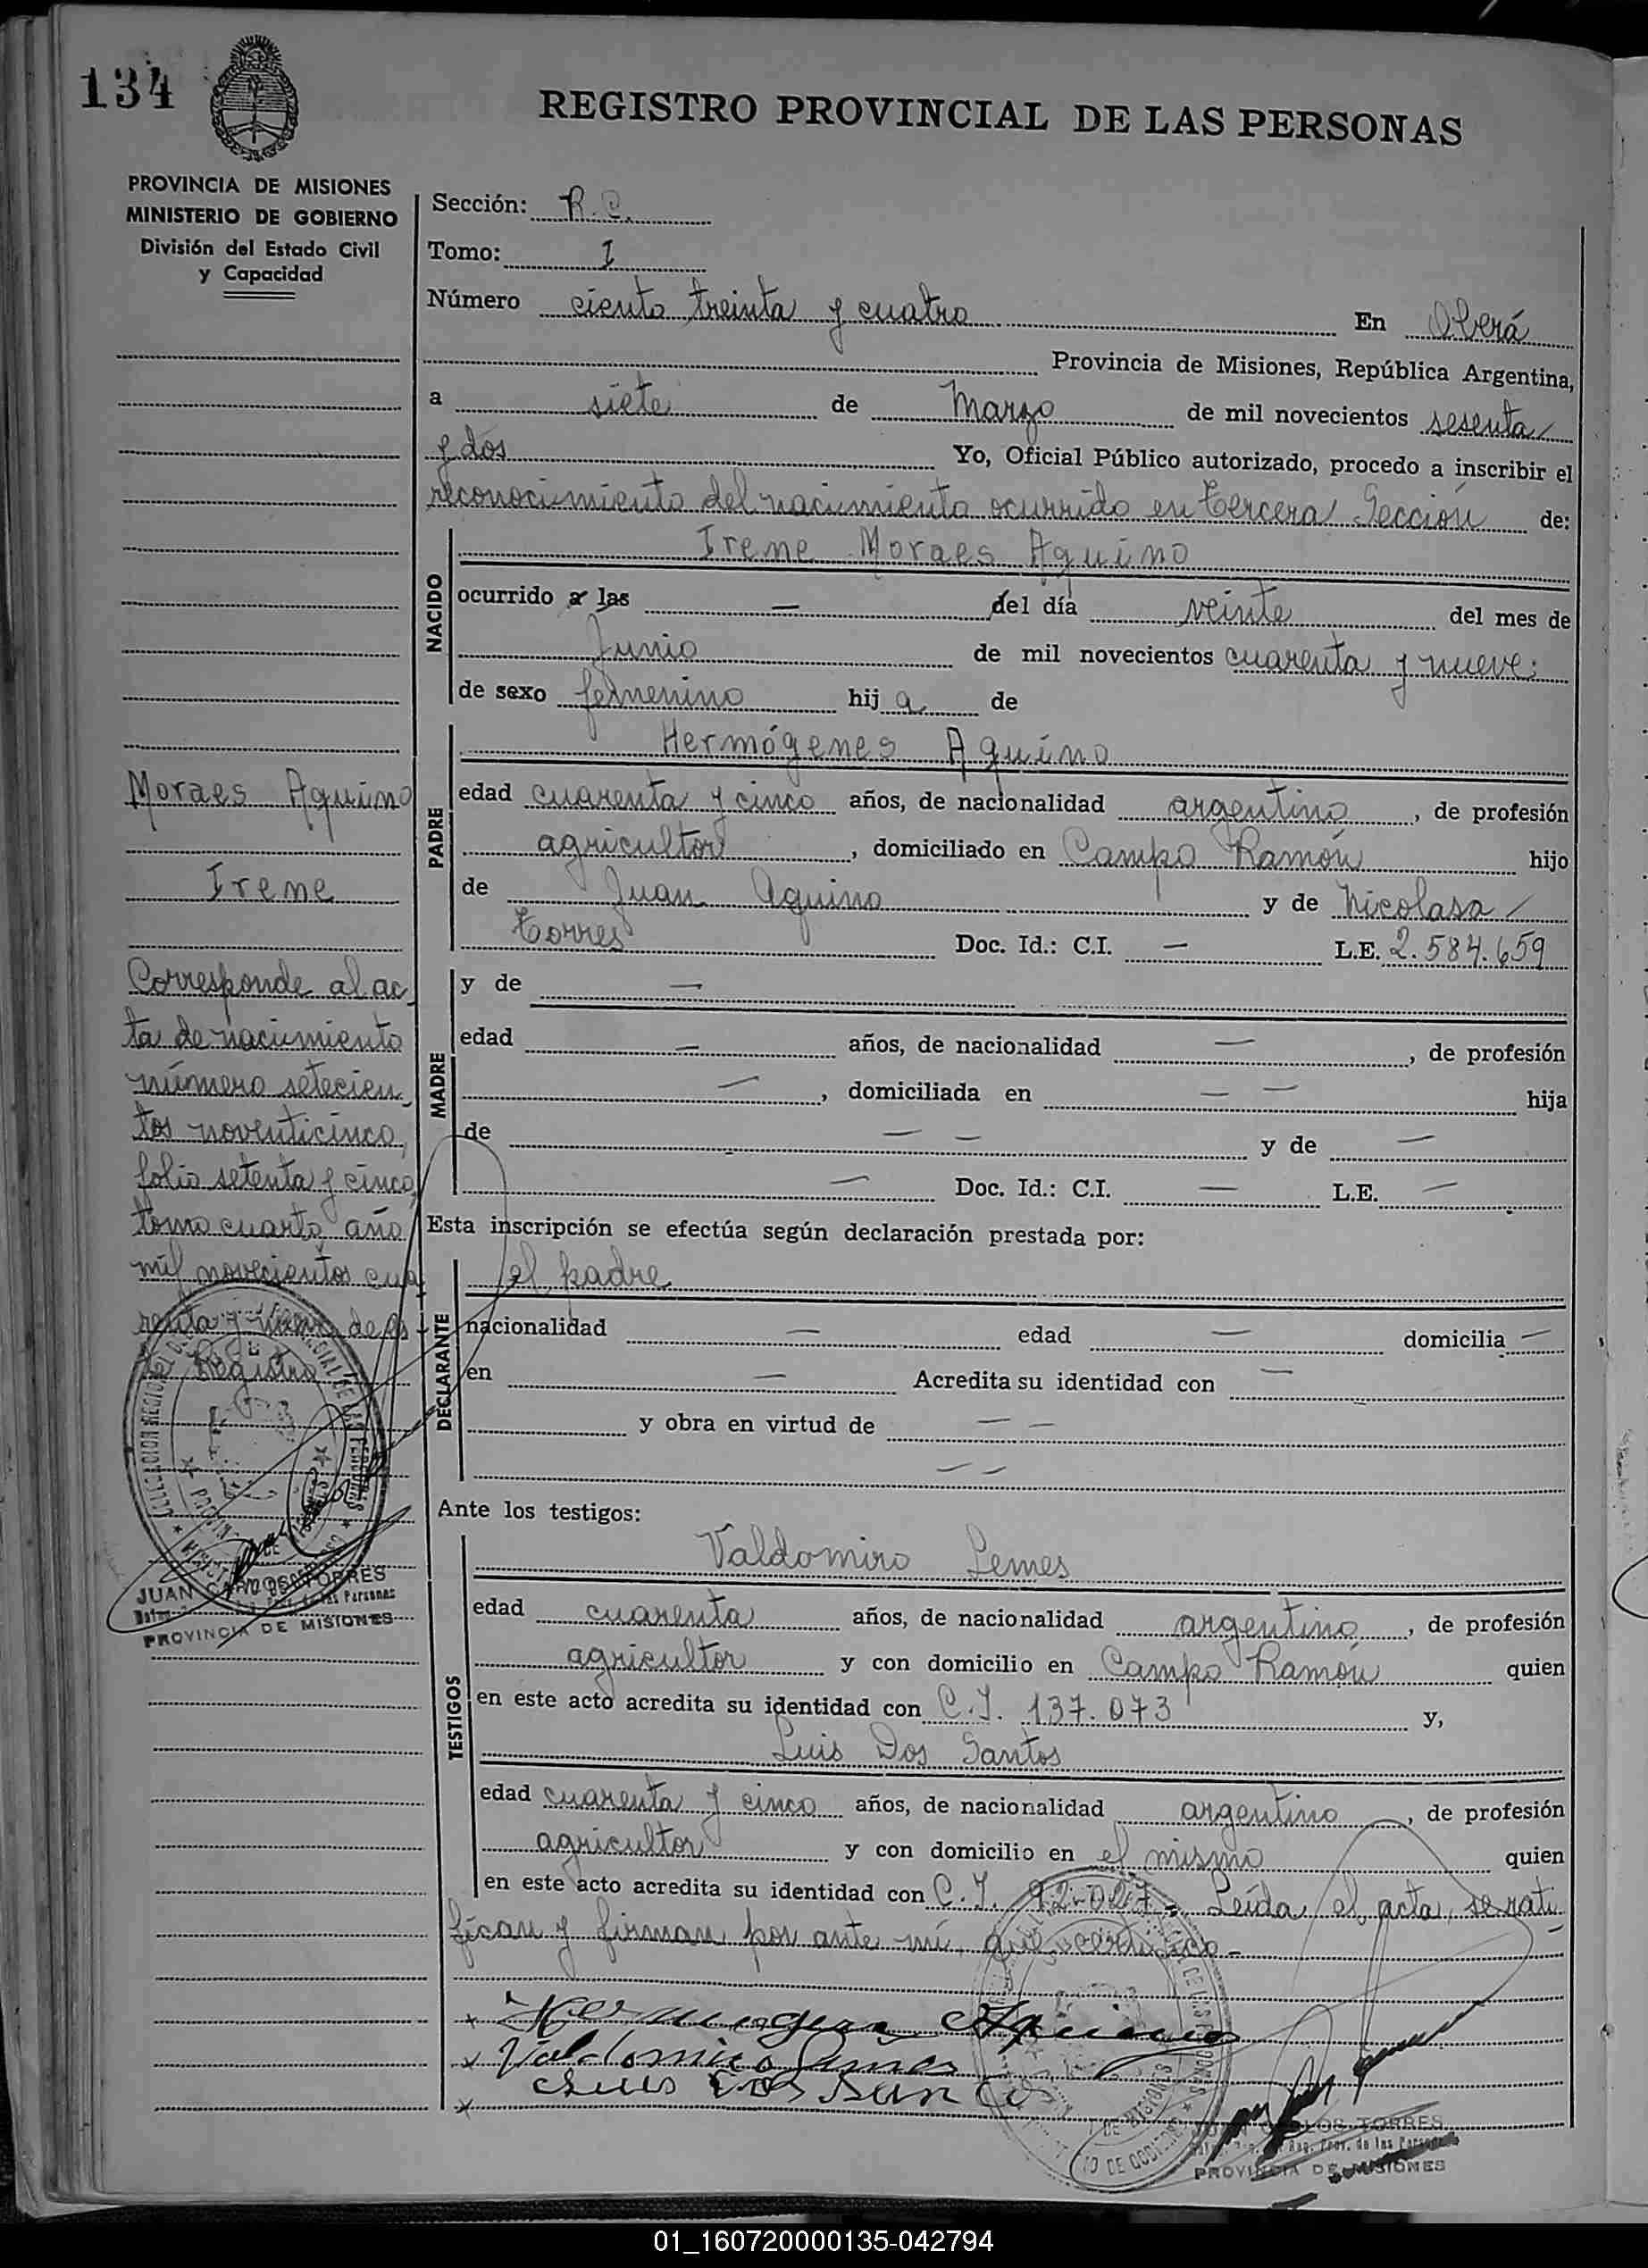 134
REGISTRO PROVINCIAL DE LAS PERSONAS
PROVINCIA DE MISIONES
MINISTERIO DE GOBIERNO
División del Estado Civil
y Capacidad
Sección: R.C.
Tomo: I
Número ciento treinta y cuatro En Oberá
Provincia de Misiones, República Argentina,
a siete de Marzo de mil novecientos sesenta
y dos Yo, Oficial Público autorizado, procedo a inscribir el
reconocimiento del nacimiento ocurrido en tercera Sección de:
NACIDO
Irene Moraes Aquino
ocurrido a las — del día veinte del mes de
Junio de mil novecientos cuarenta y nueve;
de sexo femenino hij a de
PADRE
Hermógenes Aquino
edad cuarenta y cinco años, de nacionalidad argentino, de profesión
agricultor, domiciliado en Campo Ramón hijo
de Juan Aquino y de Nicolasa
Torres Doc. Id.: C.I. — L.E. 2.584.659
MADRE
y de —
edad — años, de nacionalidad —, de profesión
—, domiciliada en — — hija
de — — y de —
— Doc. Id.: C.I. — L.E. —
Esta inscripción se efectúa según declaración prestada por:
DECLARANTE
el padre
nacionalidad — edad — domicilia —
en — Acredita su identidad con —
y obra en virtud de — —
— —
Ante los testigos:
TESTIGOS
Valdomiro Lemes
edad cuarenta años, de nacionalidad argentino, de profesión
agricultor y con domicilio en Campo Ramón quien
en este acto acredita su identidad con C.I. 137.073 y,
Luis Dos Santos
edad cuarenta y cinco años, de nacionalidad argentino, de profesión
agricultor y con domicilio en el mismo quien
en este acto acredita su identidad con C.I. 92.027.- Leída el acta, se rati
fican y firman por ante mí, que certifico.-
Moraes Aquino
Irene
Corresponde al ac
ta de nacimiento
número setecien
tos noventicinco,
folio setenta y cinco,
tomo cuarto, año
mil novecientos cua
renta y nueve de és
te Registro
JUAN CARLOS TORRES
PROVINCIA DE MISIONES
x Hermogenes Aquino
x Valdomiro Lemes
x Luis Dos Santo
JUAN CARLOS TORRES
Reg. Prov. de las Personas
PROVINCIA DE MISIONES
01_160720000135-042794